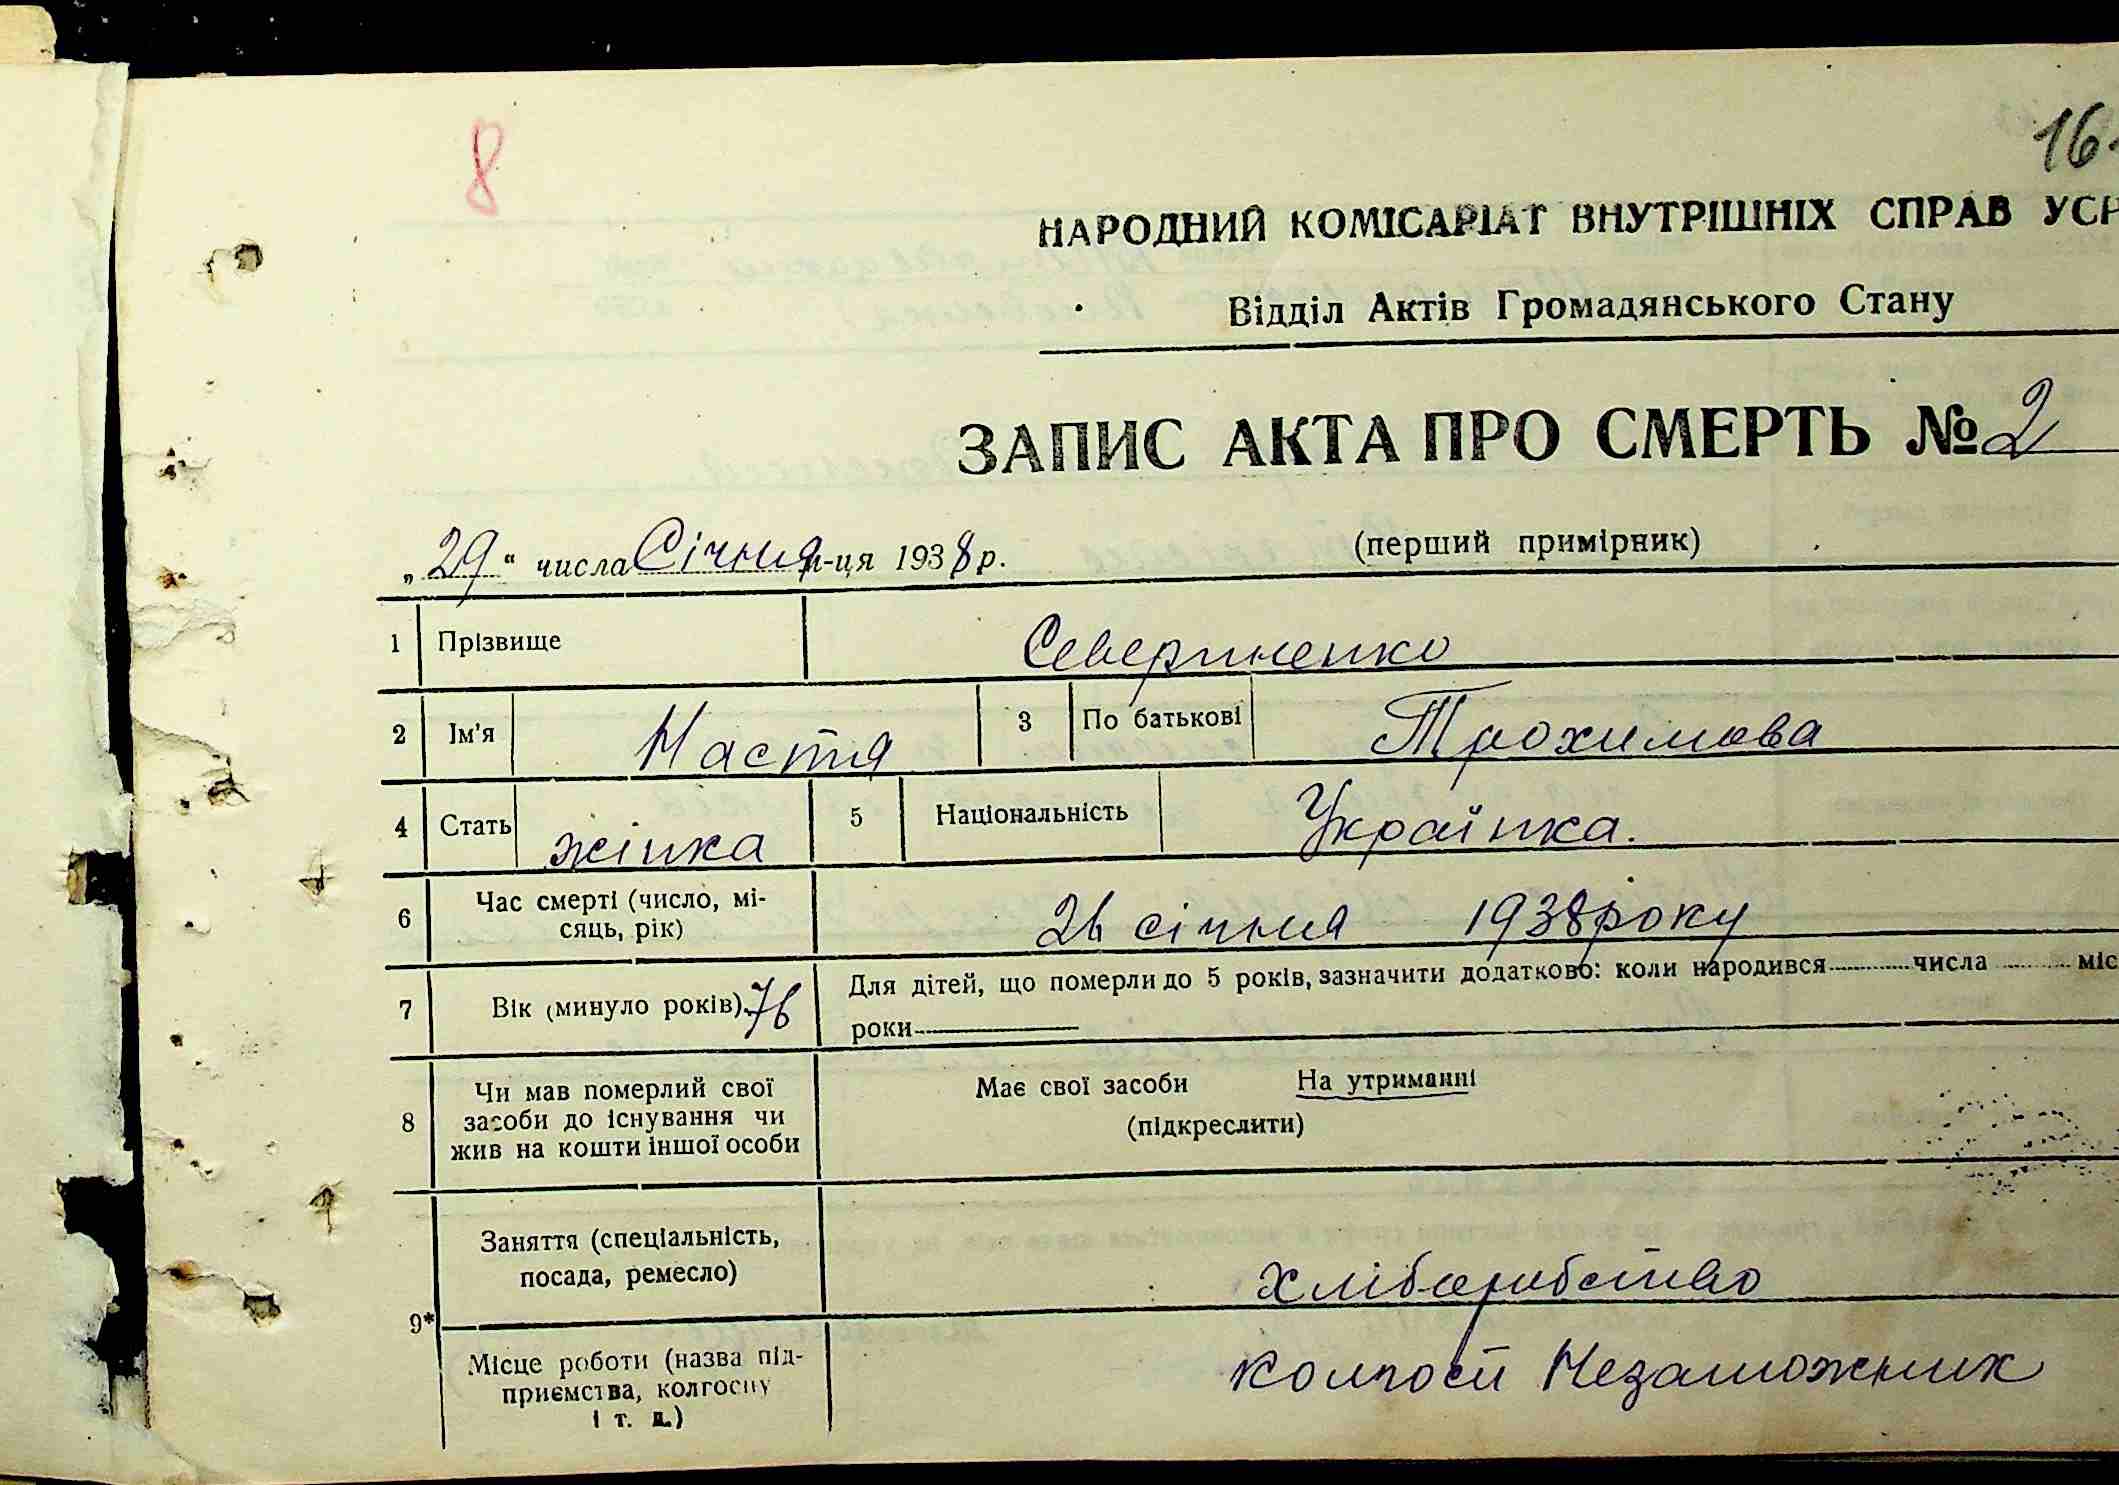 8
16
НАРОДНИЙ КОМІСАРІАТ ВНУТРІШНІХ СПРАВ УСР
Відділ Актів Громадянського Стану
ЗАПИС АКТА ПРО СМЕРТЬ № 2
„29“ числа Січня м-ця 1938 р. (перший примірник)
1 Прізвище Севериненко
2 Ім'я Настя 3 По батькові Трохимова
4 Стать жінка 5 Національність Українка.
6 Час смерті (число, мі-
сяць, рік) 26 січня 1938 року
7 Вік (минуло років) 76 Для дітей, що померли до 5 років, зазначити додатково: коли народився числа міс
роки
8 Чи мав померлий свої
засоби до існування чи
жив на кошти іншої особи
Має свої засоби На утриманні
(підкреслити)
9* Заняття (спеціальність,
посада, ремесло) хлібаробство
Місце роботи (назва під-
приємства, колгоспу
і т. д.)
Незаможник